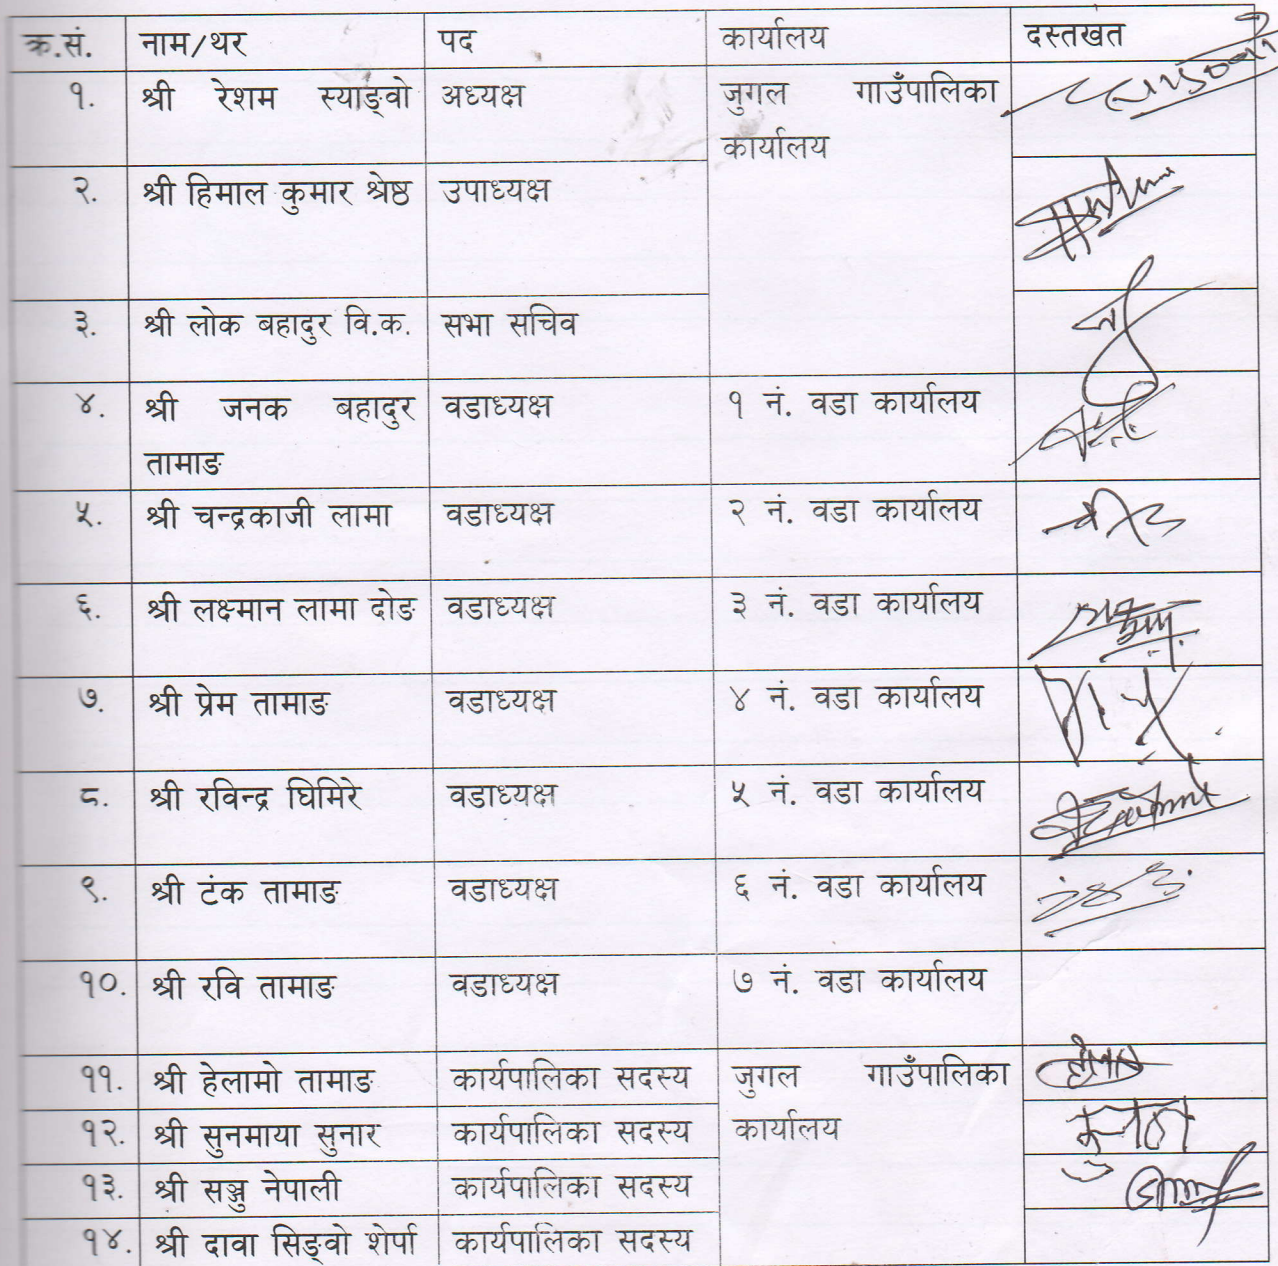 क्र.सं. नाम/थर पद कार्यालय दस्तखत
१. श्री रेशम स्याङ्वो अध्यक्ष जुगल गाउँपालिका
कार्यालय
२. श्री हिमाल कुमार श्रेष्ठ उपाध्यक्ष
३. श्री लोक बहादुर वि.क. सभा सचिव
४. श्री जनक बहादुर वडाध्यक्ष १ नं. वडा कार्यालय
तामाङ
५. श्री चन्द्रकाजी लामा वडाध्यक्ष २ नं. वडा कार्यालय
६. श्री लक्ष्मान लामा दोङ वडाध्यक्ष ३ नं. वडा कार्यालय
७. श्री प्रेम तामाङ वडाध्यक्ष ४ नं. वडा कार्यालय
८. श्री रविन्द्र घिमिरे वडाध्यक्ष ५ नं. वडा कार्यालय
९. श्री टंक तामाङ वडाध्यक्ष ६ नं. वडा कार्यालय
१०. श्री रवि तामाङ वडाध्यक्ष ७ नं. वडा कार्यालय
११. श्री हेलामो तामाङ कार्यपालिका सदस्य जुगल गाउँपालिका
१२. श्री सुनमाया सुनार कार्यपालिका सदस्य कार्यालय
१३. श्री सञ्जु नेपाली कार्यपालिका सदस्य
१४. श्री दावा सिङ्वो शेर्पा कार्यपालिका सदस्य